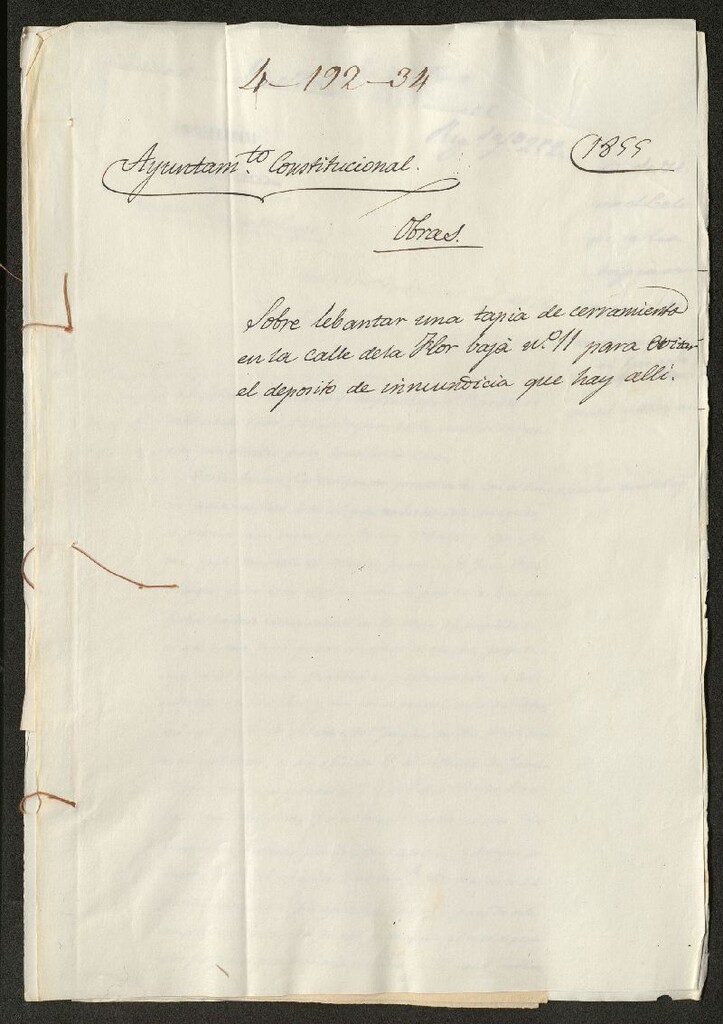 4-192-34
1855
Ayuntam.to Constitucional.
Obras.
Sobre lebantar una tapia de cerramiento
en la calle de la Flor baja n.o 11 para evitar
el deposito de inmundicia que hay alli.